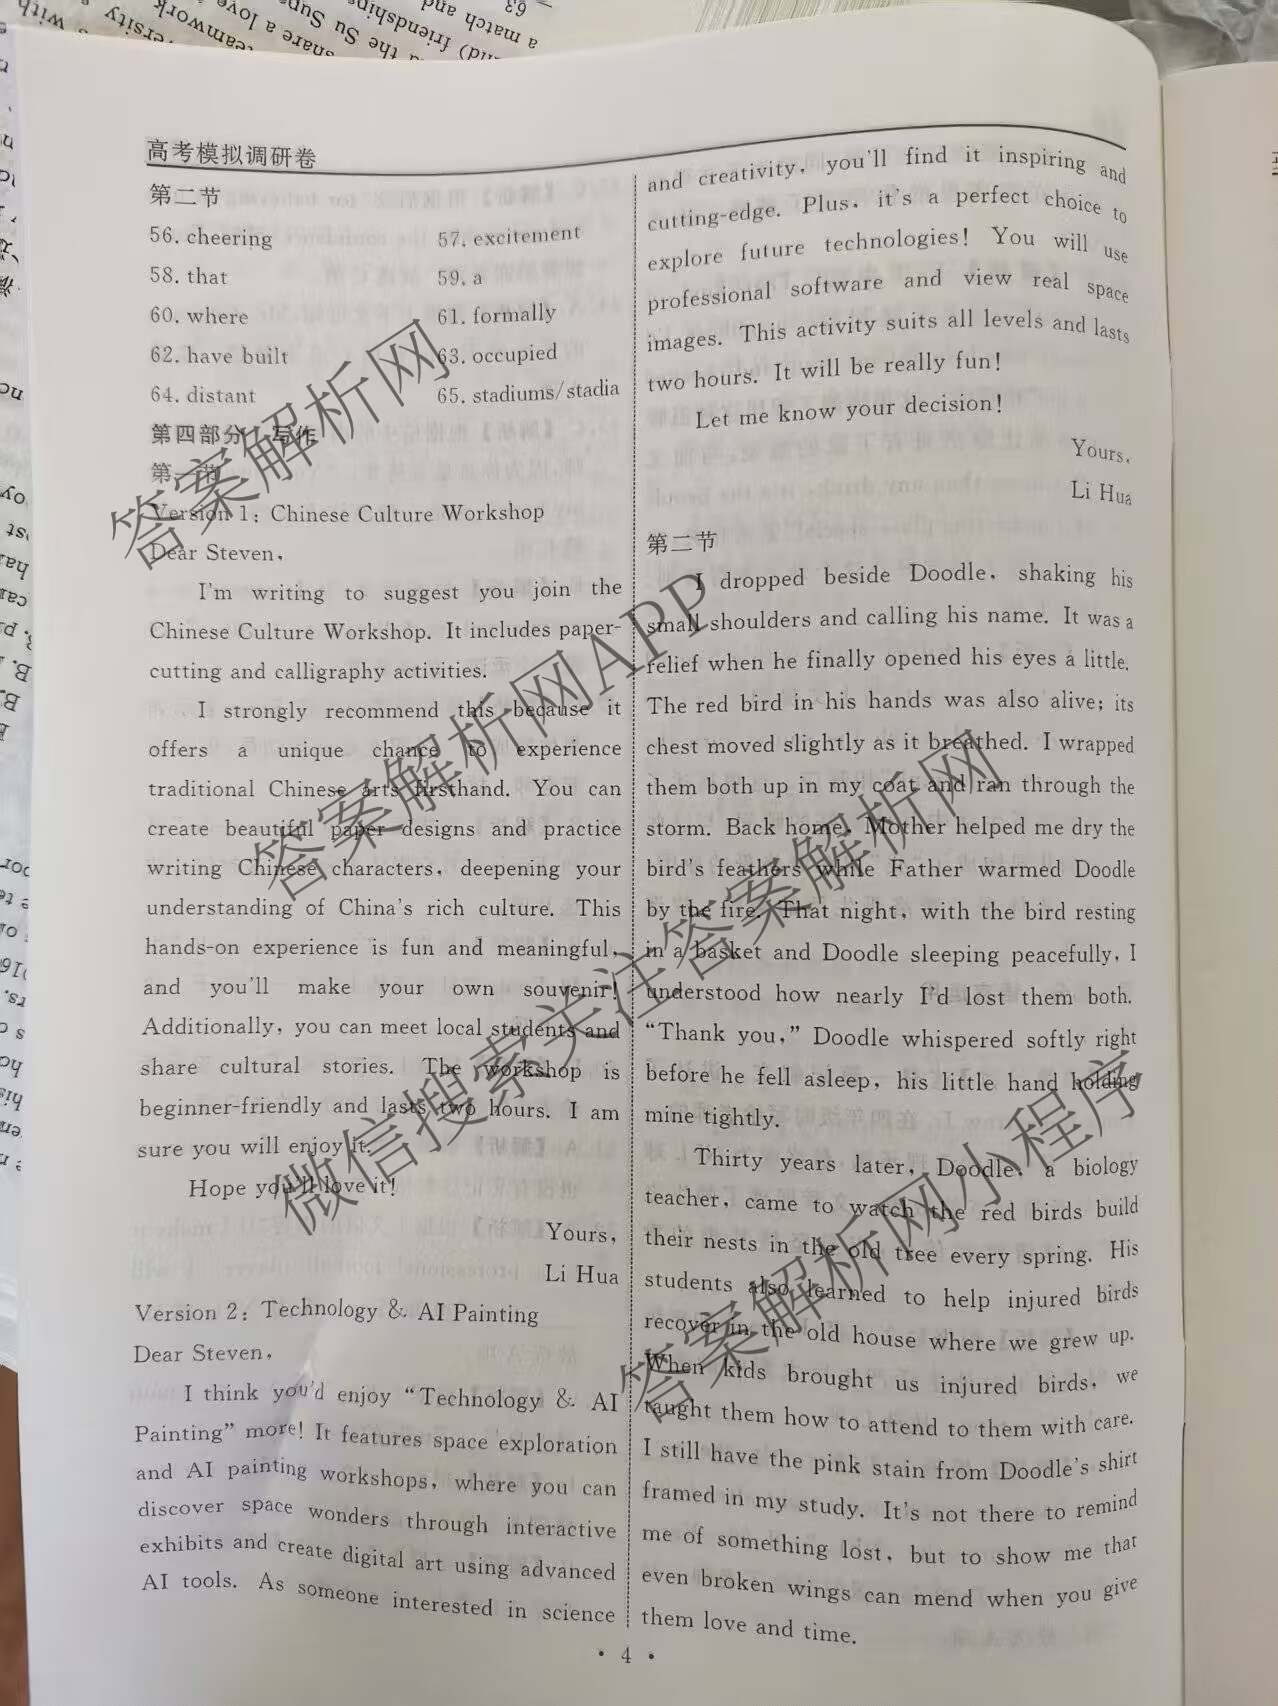 高考模拟调研卷
第二节
56. cheering 57. excitement
58. that 59. a
60. where 61. formally
62. have built 63. occupied
64. distant 65. stadiums/stadia
第四部分 写作
第一节
Version 1: Chinese Culture Workshop
Dear Steven,
I'm writing to suggest you join the
Chinese Culture Workshop. It includes paper-
cutting and calligraphy activities.
I strongly recommend this because it
offers a unique chance to experience
traditional Chinese arts firsthand. You can
create beautiful paper designs and practice
writing Chinese characters, deepening your
understanding of China's rich culture. This
hands-on experience is fun and meaningful,
and you'll make your own souvenir!
Additionally, you can meet local students and
share cultural stories. The workshop is
beginner-friendly and lasts two hours. I am
sure you will enjoy it.
Hope you'll love it!
Yours,
Li Hua
Version 2: Technology & AI Painting
Dear Steven,
I think you'd enjoy “Technology & AI
Painting” more! It features space exploration
and AI painting workshops, where you can
discover space wonders through interactive
exhibits and create digital art using advanced
AI tools. As someone interested in science
and creativity, you'll find it inspiring and
cutting-edge. Plus, it's a perfect choice to
explore future technologies! You will use
professional software and view real space
images. This activity suits all levels and lasts
two hours. It will be really fun!
Let me know your decision!
Yours,
Li Hua
第二节
I dropped beside Doodle, shaking his
small shoulders and calling his name. It was a
relief when he finally opened his eyes a little.
The red bird in his hands was also alive; its
chest moved slightly as it breathed. I wrapped
them both up in my coat and ran through the
storm. Back home, Mother helped me dry the
bird's feathers while Father warmed Doodle
by the fire. That night, with the bird resting
in a basket and Doodle sleeping peacefully, I
understood how nearly I'd lost them both.
“Thank you,” Doodle whispered softly right
before he fell asleep, his little hand holding
mine tightly.
Thirty years later, Doodle, a biology
teacher, came to watch the red birds build
their nests in the old tree every spring. His
students also learned to help injured birds
recover in the old house where we grew up.
When kids brought us injured birds, we
taught them how to attend to them with care.
I still have the pink stain from Doodle's shirt
framed in my study. It's not there to remind
me of something lost, but to show me that
even broken wings can mend when you give
them love and time.
· 4 ·
答案解析网
微信搜索关注答案解析网小程序
答案解析网APP
答案解析网
答案解析网